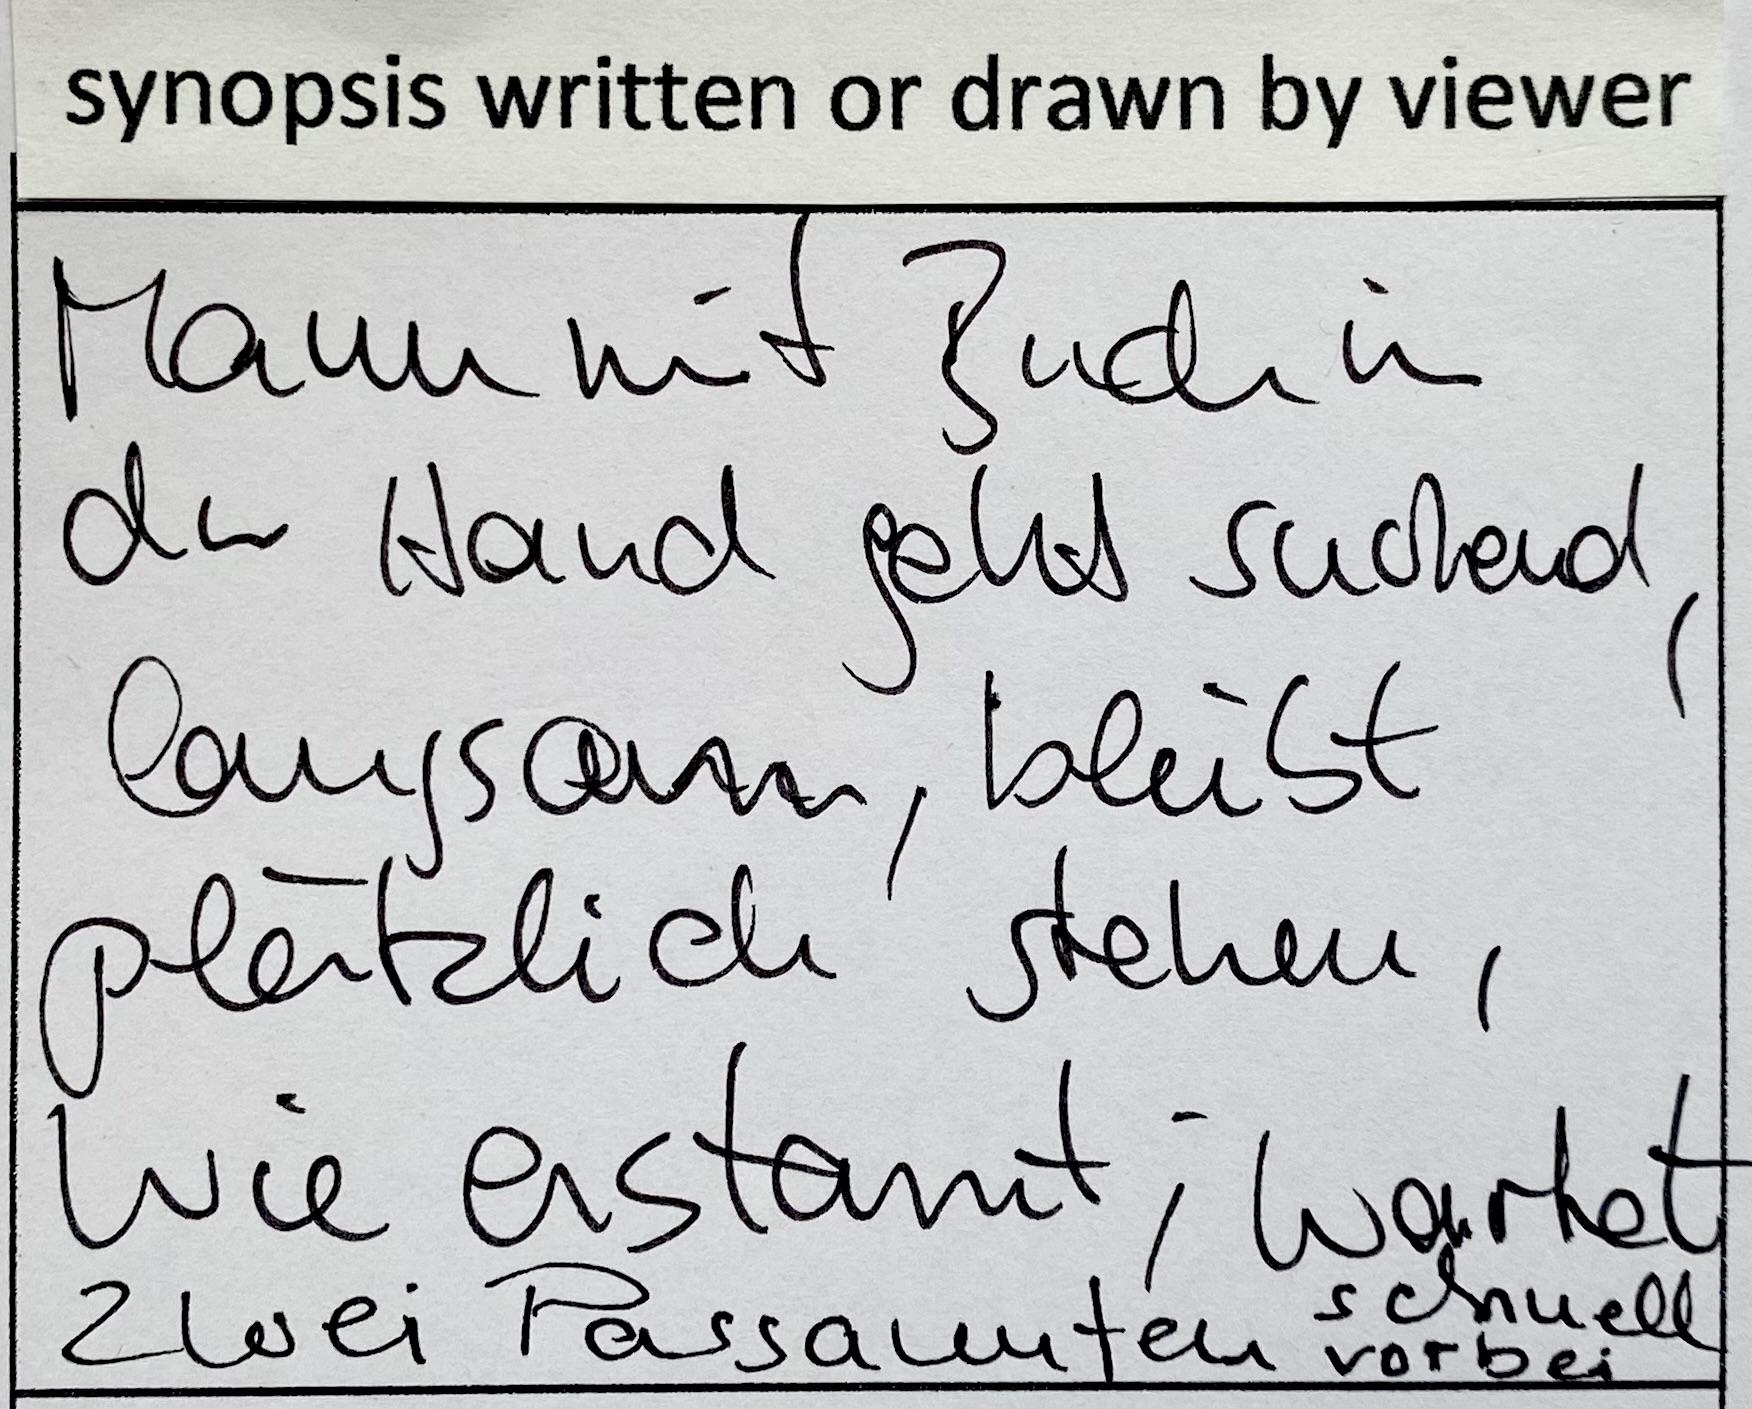 synopsis written or drawn by viewer
Mann mit Buch in
der Hand geht suchend,
langsam, bleibt
plötzlich stehen,
wie erstarrt, wartet
zwei Passanten schnell
vorbei